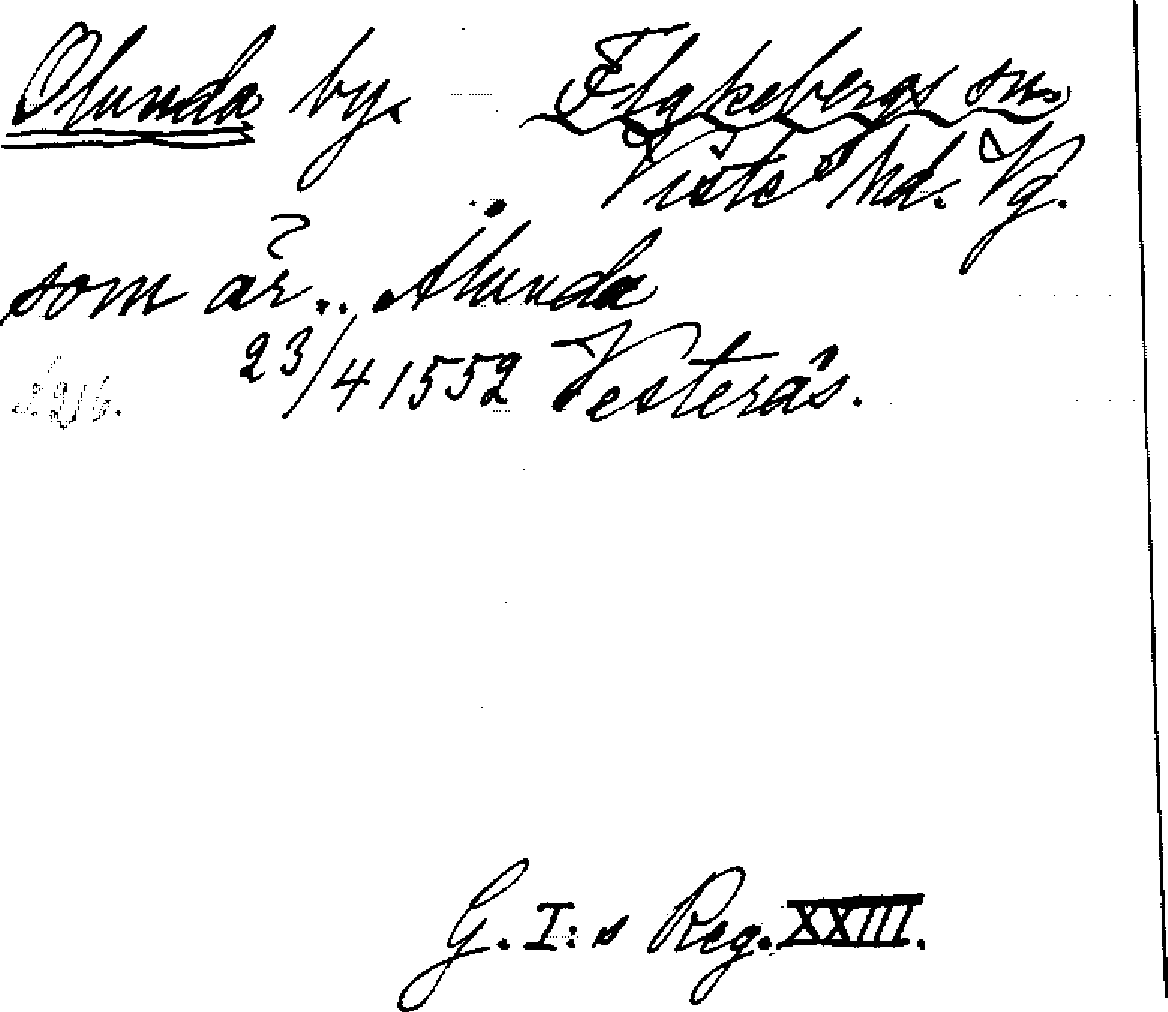 Olunda by. Flakebergs sn.
Viste hd. Vg.
som är.. Ålunda
23/4 1552 Vesterås.
G. I:s Reg. XXIII.